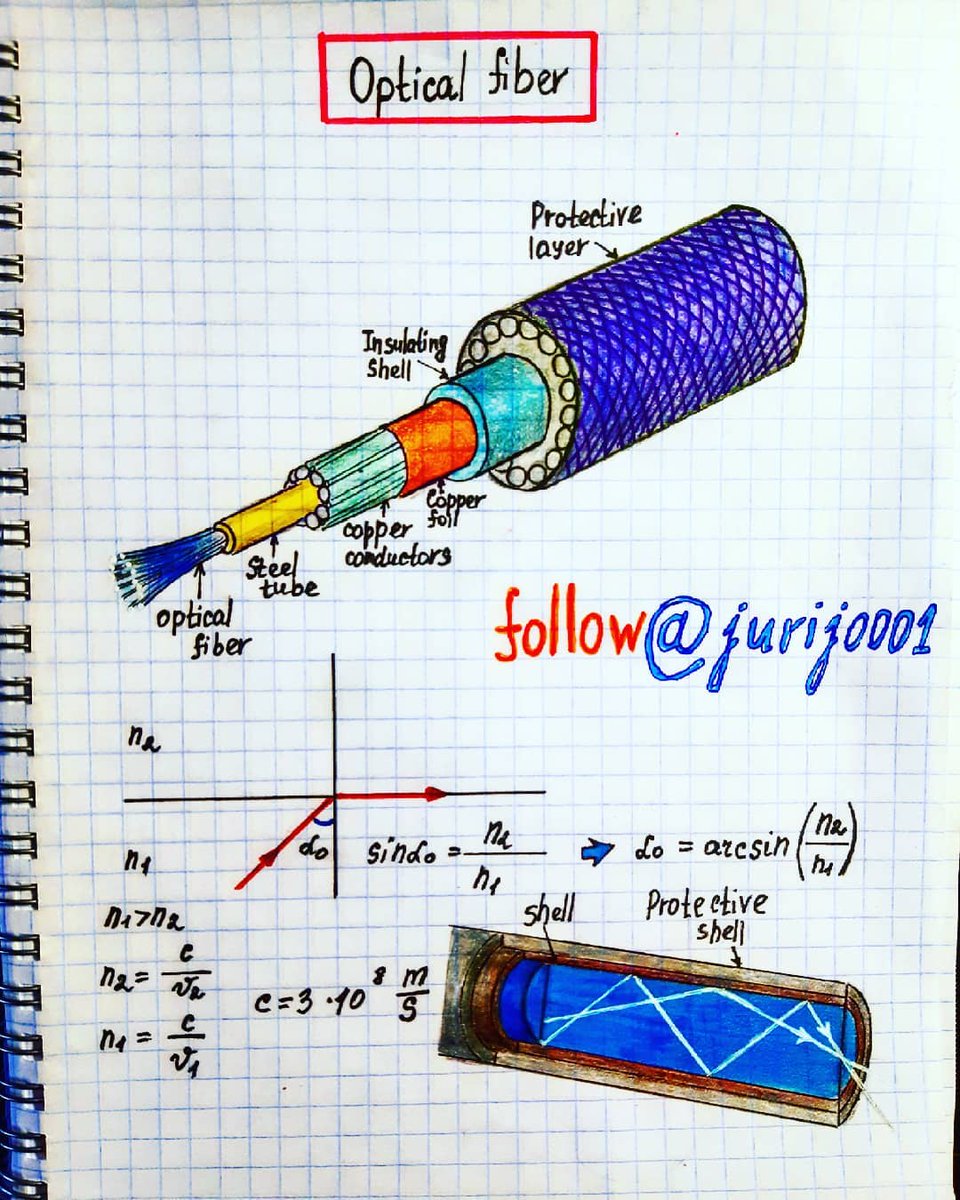 Optical fiber
Protective
layer
Insulating
shell
Copper
foil
copper
conductors
Steel
tube
optical
fiber
follow@jurij0001
n₂
n₁
α₀
sinα₀ = n₂/n₁ ➡ α₀ = arcsin(n₂/n₁)
n₁>n₂
n₂ = c/v₂
n₁ = c/v₁
c = 3 · 10⁸ m/s
shell
Protective
shell